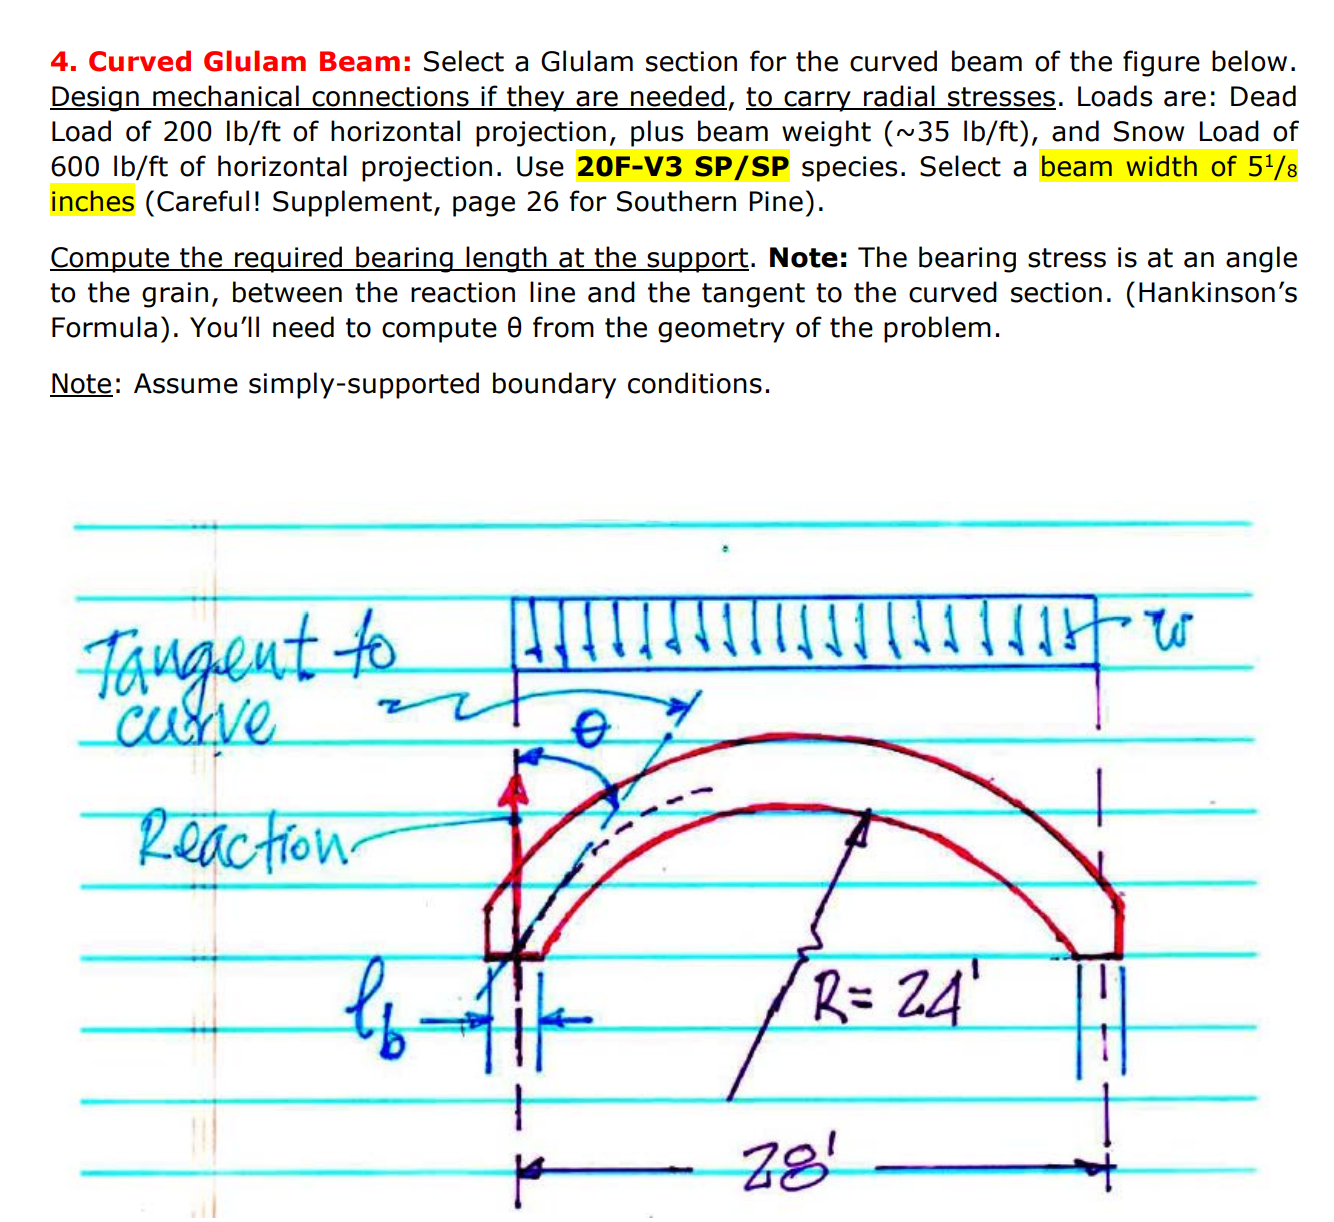 4. Curved Glulam Beam: Select a Glulam section for the curved beam of the figure below.
Design mechanical connections if they are needed, to carry radial stresses. Loads are: Dead
Load of 200 lb/ft of horizontal projection, plus beam weight (~35 lb/ft), and Snow Load of
600 lb/ft of horizontal projection. Use 20F-V3 SP/SP species. Select a beam width of 5¹/₈
inches (Careful! Supplement, page 26 for Southern Pine).
Compute the required bearing length at the support. Note: The bearing stress is at an angle
to the grain, between the reaction line and the tangent to the curved section. (Hankinson’s
Formula). You’ll need to compute θ from the geometry of the problem.
Note: Assume simply-supported boundary conditions.
w
Tangent to
curve
θ
Reaction
R= 24'
lb
28'